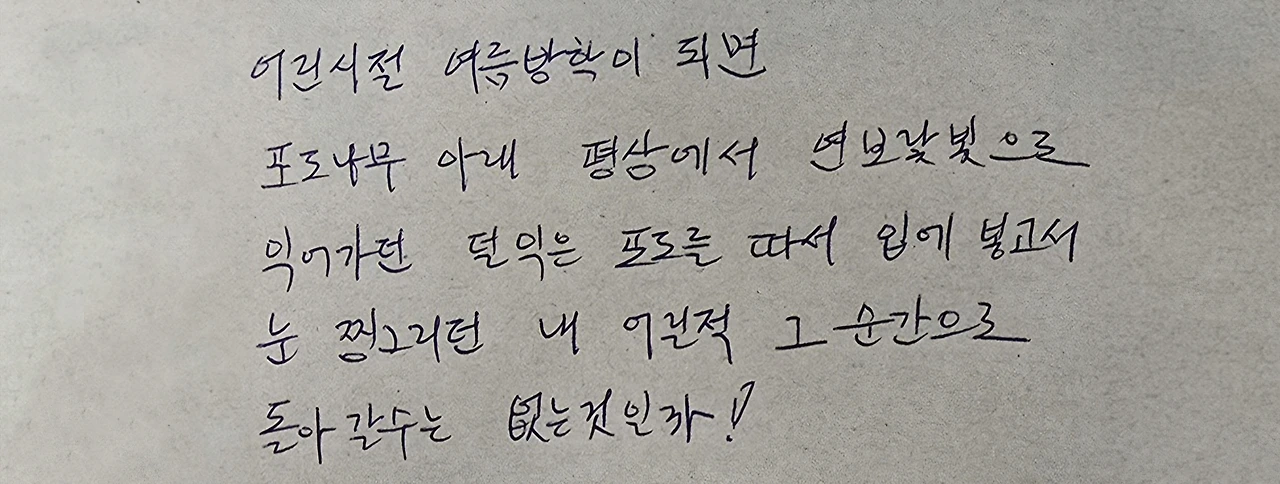 어린시절 여름방학이 되면
포도나무 아래 평상에서 연보랓빛으로
익어가던 덜익은 포도를 따서 입에 넣고서
눈 찡그리던 내 어린적 그 순간으로
돌아 갈수는 없는것인가!